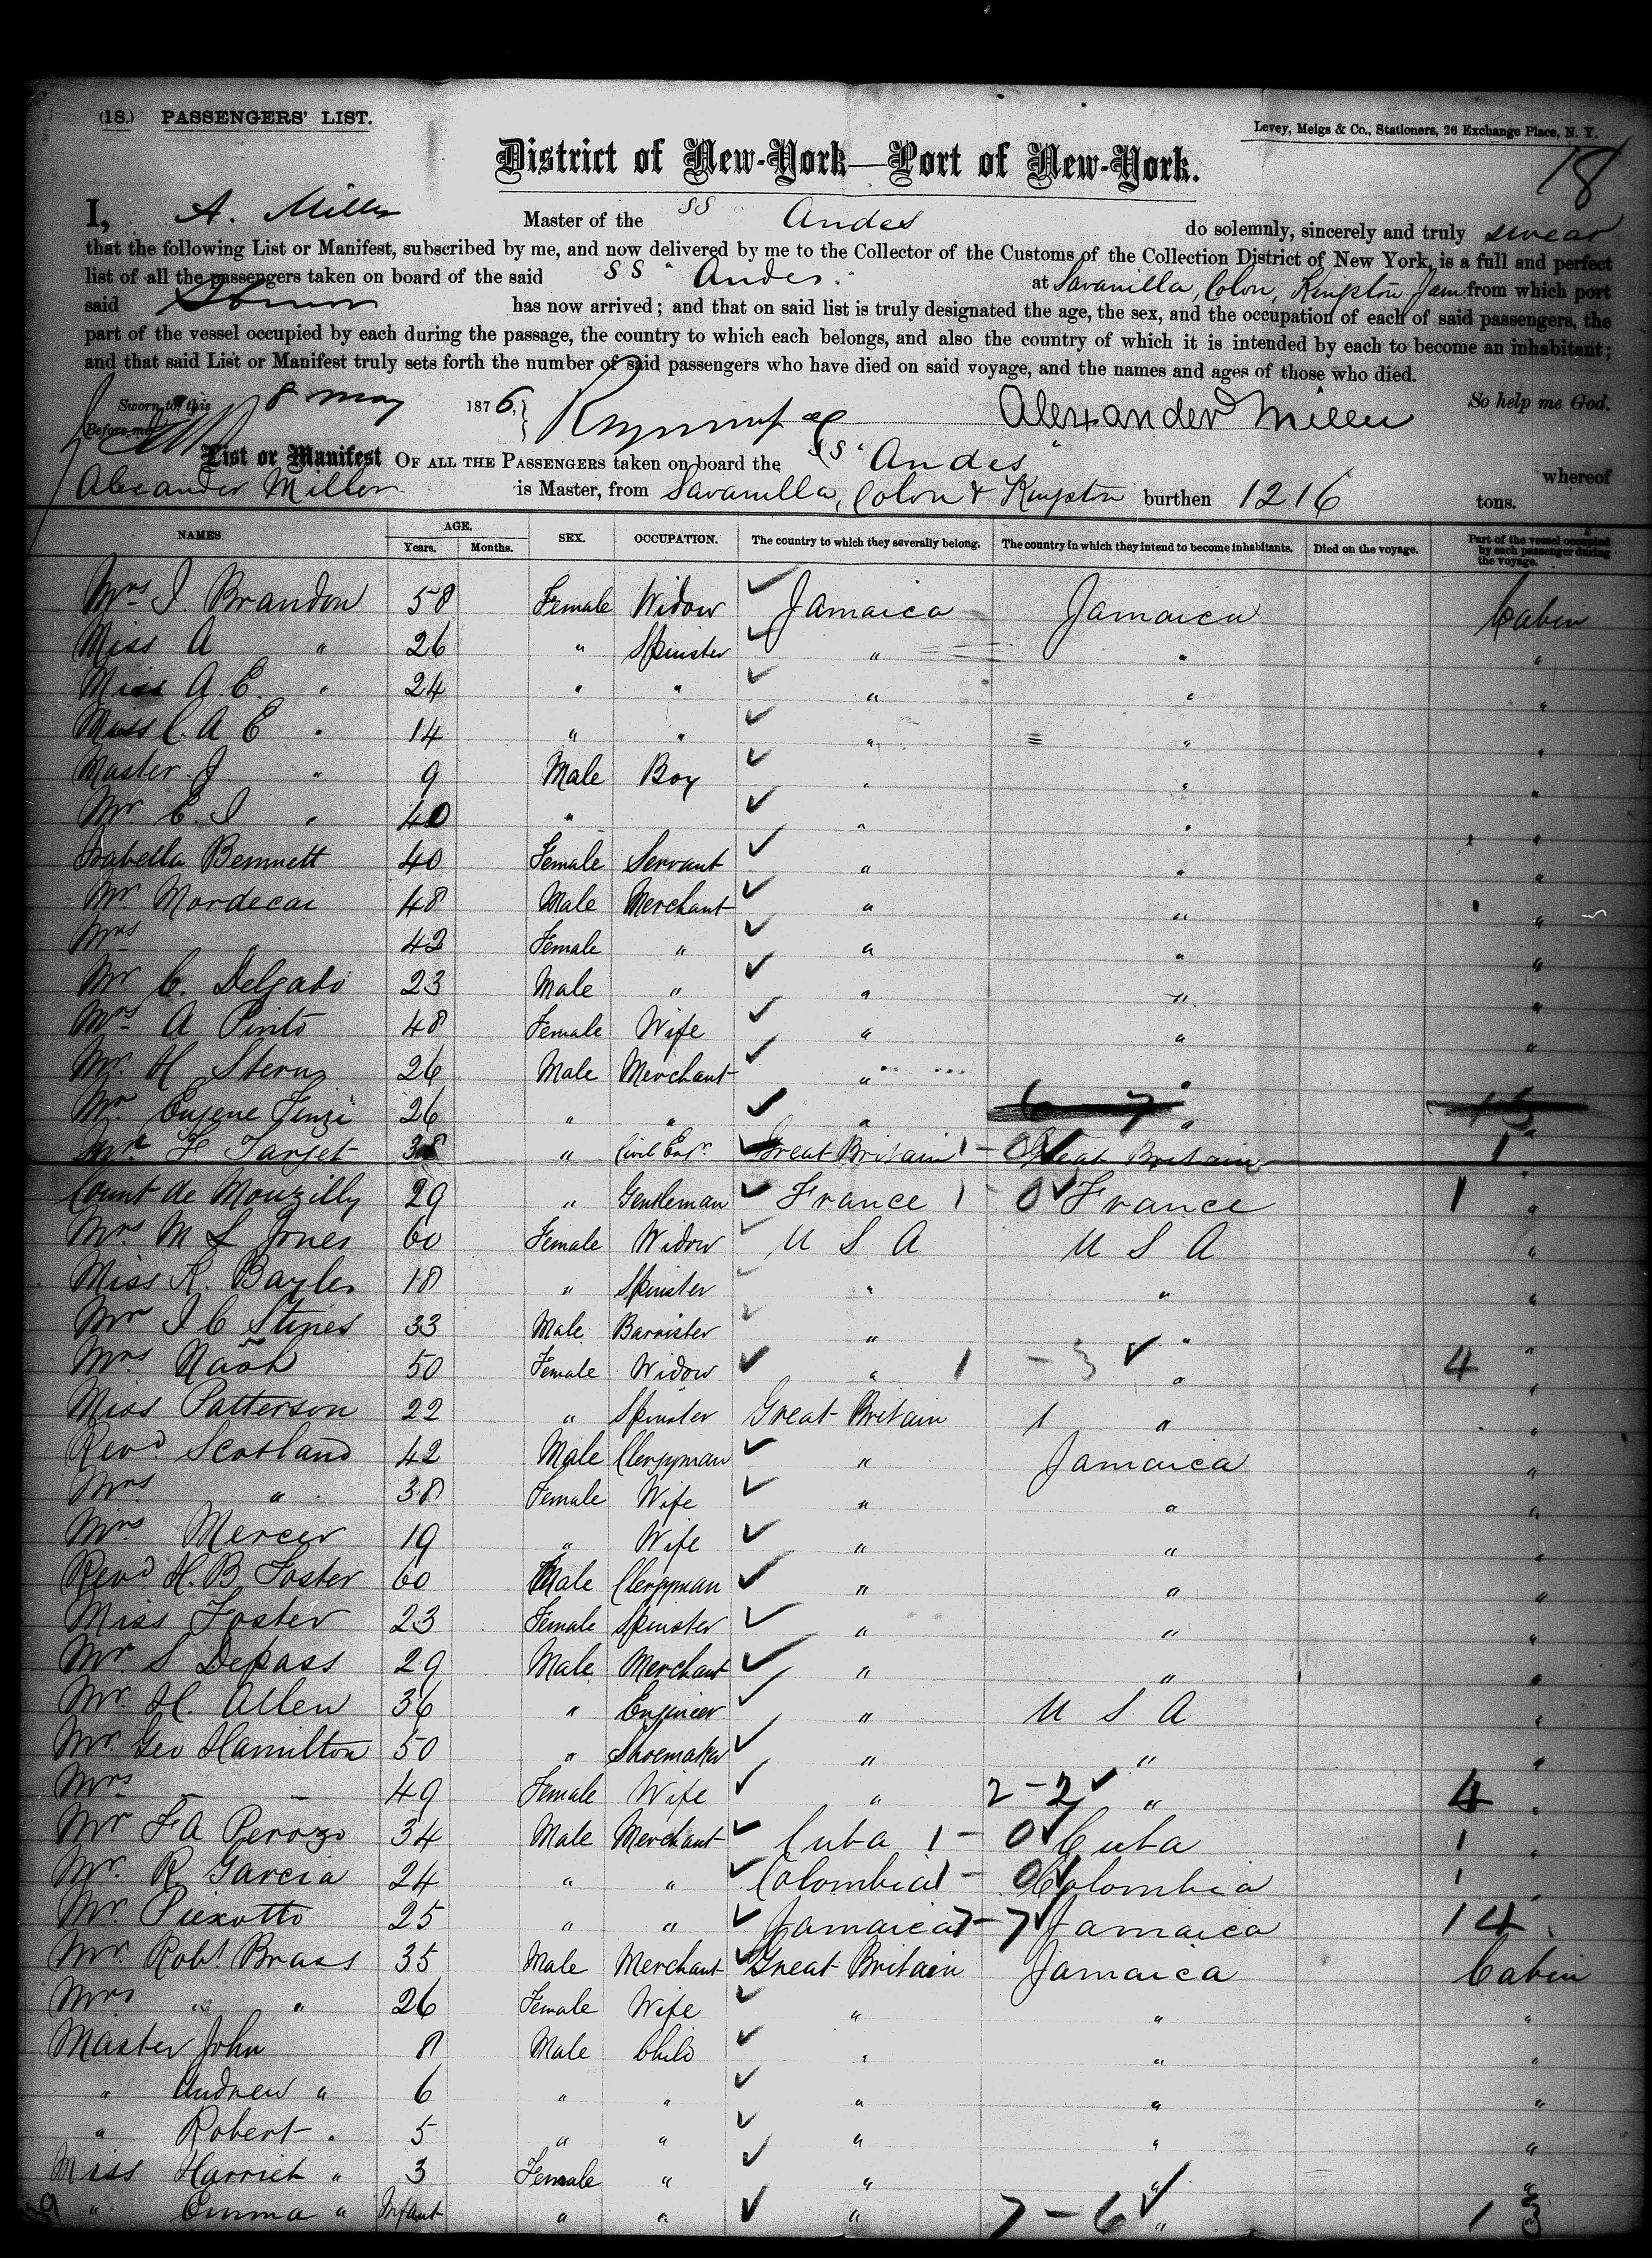 (18.) PASSENGERS' LIST.
Levey, Meigs & Co., Stationers, 26 Exchange Place, N. Y.
18
District of New-York—Port of New-York.
I, A. Miller Master of the SS Andes do solemnly, sincerely and truly swear
that the following List or Manifest, subscribed by me, and now delivered by me to the Collector of the Customs of the Collection District of New York, is a full and perfect
list of all the passengers taken on board of the said SS "Andes" at Savanilla, Colon, Kingston Jam from which port
said has now arrived; and that on said list is truly designated the age, the sex, and the occupation of each of said passengers, the
part of the vessel occupied by each during the passage, the country to which each belongs, and also the country of which it is intended by each to become an inhabitant;
and that said List or Manifest truly sets forth the number of said passengers who have died on said voyage, and the names and ages of those who died.
Sworn to, this 8 May 1876, Alexander Miller So help me God.
Before me
List or Manifest OF ALL THE PASSENGERS taken on board the SS "Andes" whereof
Alexander Miller is Master, from Savanilla, Colon & Kingston burthen 1216 tons.
NAMES. AGE. Years. Months. SEX. OCCUPATION. The country to which they severally belong. The country in which they intend to become inhabitants. Died on the voyage. Part of the vessel occupied by each passenger during the voyage.
Mrs I. Brandon 58 Female Widow ✓ Jamaica Jamaica Cabin
Miss A " 26 " Spinster ✓ " " "
Miss A. E. " 24 " " ✓ " " "
Miss C. A E " 14 " " ✓ " " "
Master J " 9 Male Boy ✓ " " "
Mr E. I " 40 " ✓ " " "
Isabella Bennett 40 Female Servant ✓ " " "
Mr Mordecai 48 Male Merchant ✓ " " "
Mrs " 42 Female " ✓ " " "
Mr C. Delgado 23 Male " ✓ " " "
Mrs A Pinto 48 Female Wife ✓ " " "
Mr. H Stern 26 Male Merchant ✓ " " "
Mr Eugene Finzi 26 " " ✓ " " "
Mr F. Target 38 " Civil Engr. ✓ Great Britain 1 - 0 ✓ Great Britain 1 "
Count de Mouzilly 29 " Gentleman ✓ France 1 - 0 ✓ France 1 "
Mrs M L Jones 60 Female Widow ✓ U S A U S A "
Miss K. Bayles 18 " Spinster ✓ " " "
Mr I C Stines 33 Male Barrister ✓ " " "
Mrs Nash 50 Female Widow ✓ " 1 - 3 ✓ " 4 "
Miss Patterson 22 " Spinster Great Britain 1 " "
Revd. Scotland 42 Male Clergyman ✓ " Jamaica "
Mrs " 38 Female Wife ✓ " " "
Mrs Mercer 19 " Wife ✓ " " "
Revd. H. B Foster 60 Male Clergyman ✓ " " "
Miss Foster 23 Female Spinster ✓ " " "
Mr S Depass 29 Male Merchant ✓ " " "
Mr. H. Allen 36 " Engineer ✓ " U S A "
Mr. Geo Hamilton 50 " Shoemaker ✓ " " "
Mrs " 49 Female Wife ✓ " 2 - 2 ✓ " 4 "
Mr F A Perozo 34 Male Merchant ✓ Cuba 1 - 0 ✓ Cuba 1 "
Mr. R Garcia 24 " " ✓ Colombia 1 - 0 ✓ Colombia 1 "
Mr. Piexotto 25 " " ✓ Jamaica 7 - 7 ✓ Jamaica 14 "
Mr. Robt. Brass 35 Male Merchant ✓ Great Britain Jamaica Cabin
Mrs " " 26 Female Wife ✓ " " "
Master John 8 Male Child ✓ " " "
" Andrew " 6 " " ✓ " " "
" Robert " 5 " " ✓ " " "
Miss Harriet " 3 Female " ✓ " " "
" Emma " Infant " " ✓ " 7 - 6 ✓ " 13